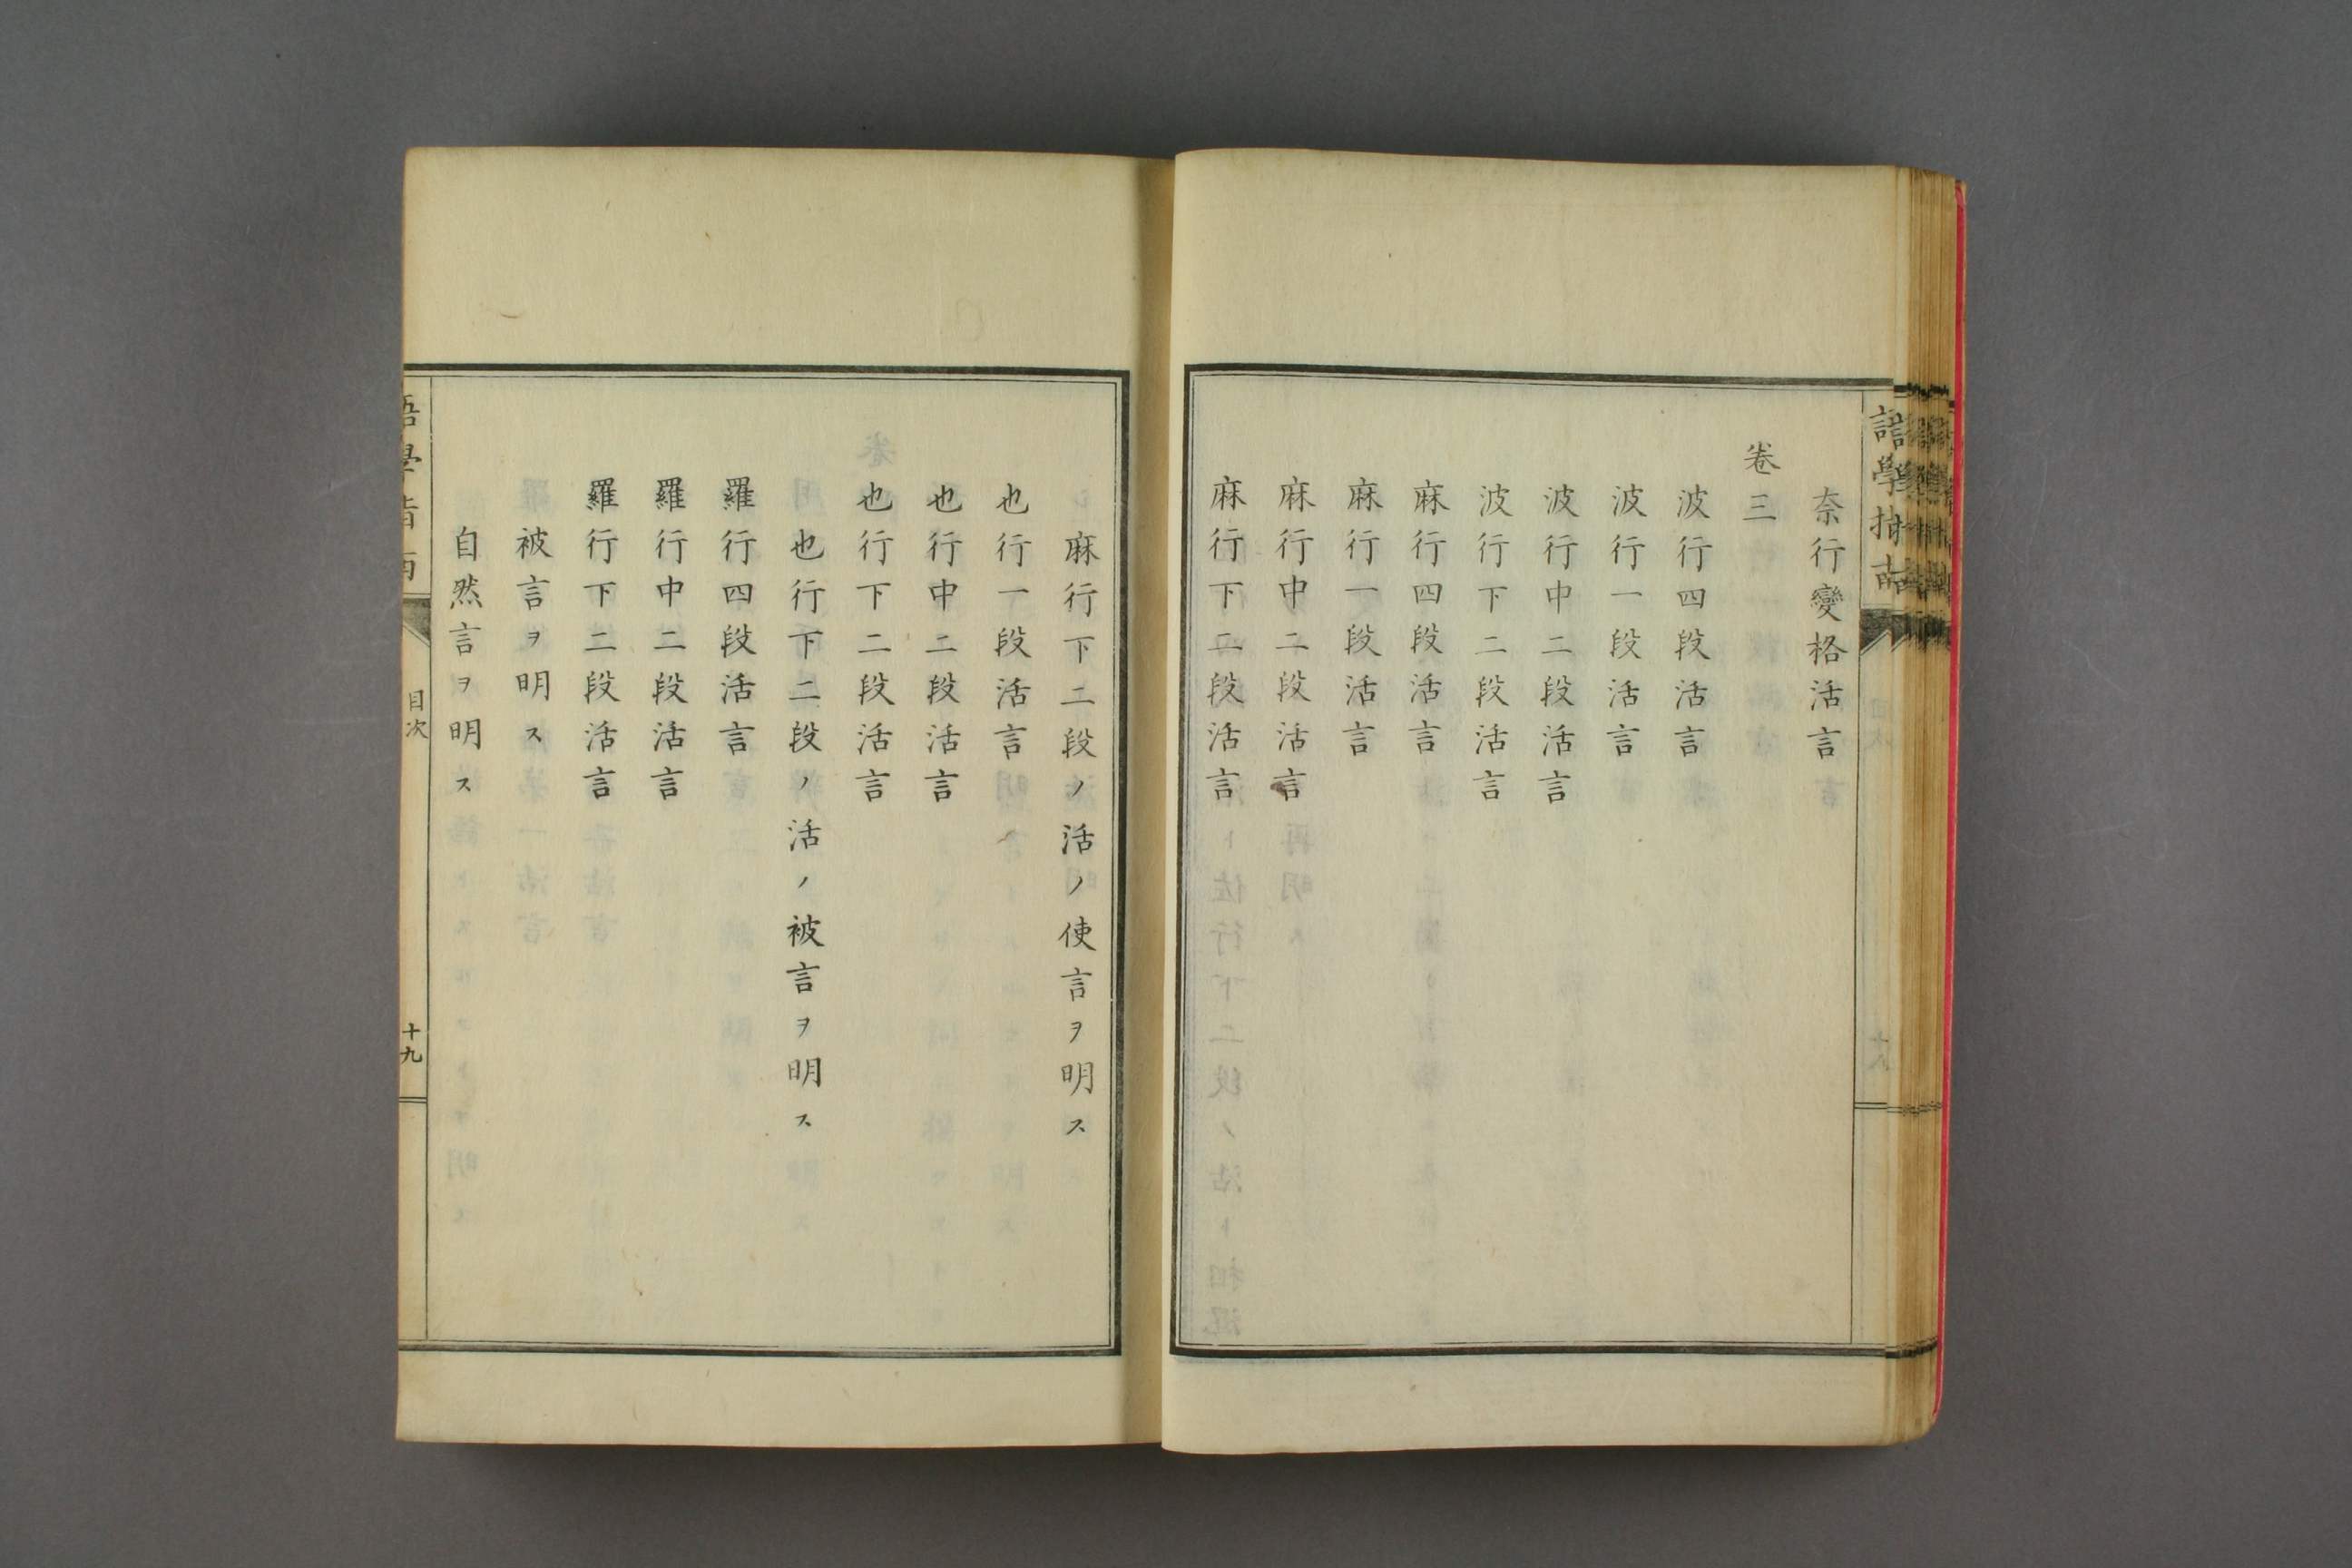 奈行變格活言
卷三
波行四段活言
波行一段活言
波行中二段活言
波行下二段活言
麻行四段活言
麻行一段活言
麻行中二段活言
麻行下二段活言
麻行下二段ノ活ノ使言ヲ明ス
也行一段活言
也行中二段活言
也行下二段活言
也行下二段ノ活ノ被言ヲ明ス
羅行四段活言
羅行中二段活言
羅行下二段活言
被言ヲ明ス
自然言ヲ明ス
語學指南
目次
十九